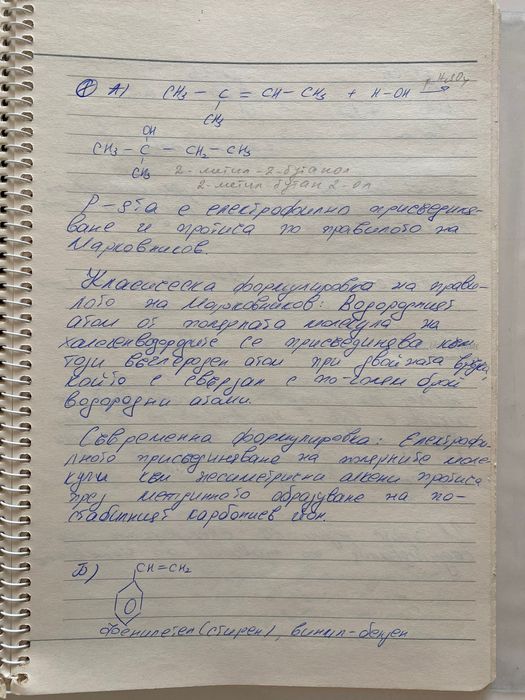 ① А) CH3 – C = CH – CH3 + H – OH H2SO4 →
CH3
OH
CH3 – C – CH2 – CH3
CH3
2-метил-2-бутанол
2-метил бутан 2-ол
Р-я̀та е електрофилно присъединя-
ване и протича по правилото на
Марковников.
Класическа формулировка на прави-
лото на Марковников: Водородният
атом от полярната молекула на
халогенводородите се присъединява към
този въглероден атом при двойната връзка,
който е свързан с по-голям брой
водородни атоми.
Съвременна формулировка: Електрофи-
лното присъединяване на полярните моле-
кули към несиметрични алкени протича
през междинното образуване на по-
стабилният карбониев йон.
Б) CH = CH2
Фенилетен (стирен), винил-бензен